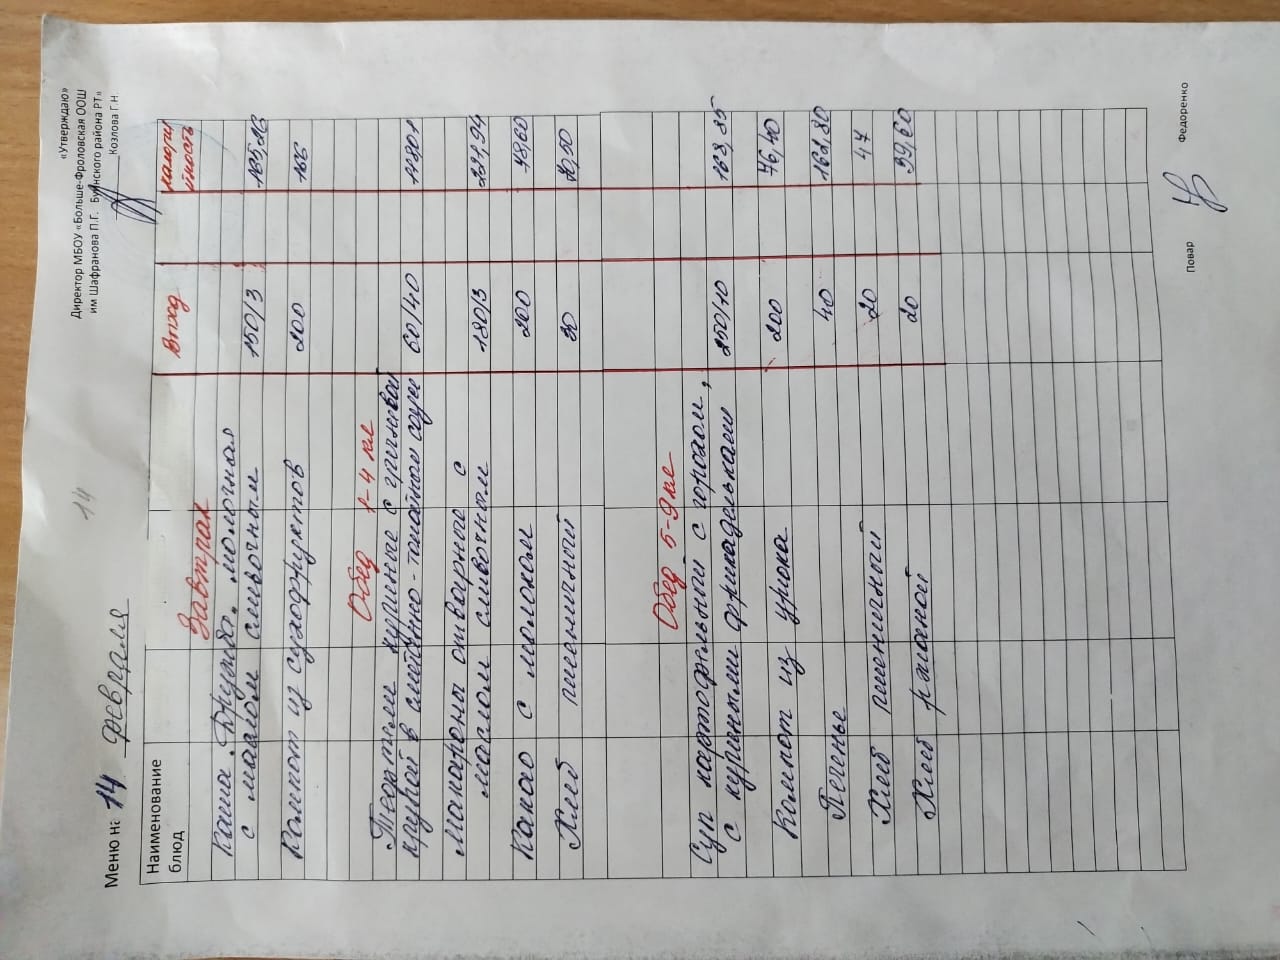 «Утверждаю»
Директор МБОУ «Больше-Фроловская ООШ
им Шафранова П.Г. Буинского района РТ»
Козлова Г.Н.
14
Меню на 14 февраля
Наименование блюд Выход калорийность
Завтрак
Каша "Дружба" молочная
с маслом сливочным 150/3 165,26
Компот из сухофруктов 200 166
Обед 1-4 кл
Тефтели куриные с гречневой
крупой в сметанно-томатном соусе 60/40
Макароны отварные с
маслом сливочным 180/3 221,94
Какао с молоком 200 48,60
Хлеб пшеничный 30 70,50
Обед 5-9 кл
Суп картофельный с горохом,
с куриными фрикадельками 250/10 163,85
Компот из урюка 200 76,40
Печенье 40 161,80
Хлеб пшеничный 20 47
Хлеб ржаной 20 39,60
Повар Федоренко